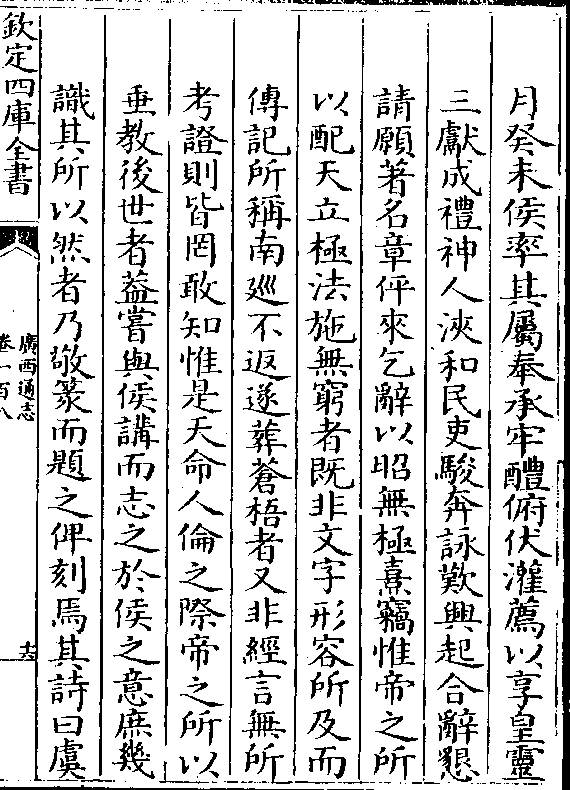 月癸未侯率其屬奉承牢醴俯伏灌薦以享皇靈
三獻成禮神人浹和民吏駿奔詠歎興起合辭懇
請願著名章伻來乞辭以昭無極熹竊惟帝之所
以配天立極法施無窮者既非文字形容所及而
傳記所稱南巡不返遂葬蒼梧者又非經言無所
考證則皆罔敢知惟是天命人倫之際帝之所以
垂教後世者葢嘗與侯講而志之於侯之意庶幾
識其所以然者乃敬篆而題之俾刻焉其詩曰虞
欽定四庫全書
廣西通志
卷一百八
十六